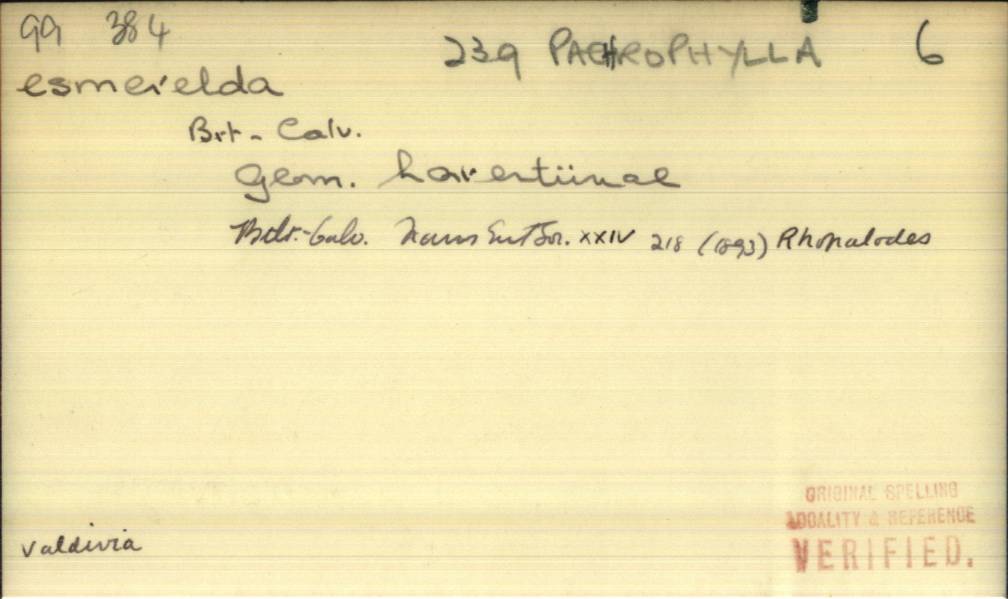 99 384
239 PACHROPHYLLA 6
esmerelda
Brt- Calv.
Geom. larentiinae
Btlt.-Calv. Trans Ent Soc. XXIV 218 (1893) Rhopalodes
Valdivia
ORIGINAL SPELLING
LOCALITY & REFERENCE
VERIFIED.